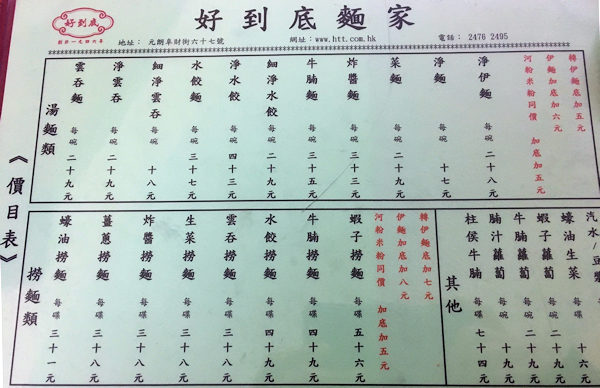 好到底
創於一九四六年
好到底麵家
地址: 元朗阜財街六十七號
網址:www.htt.com.hk
電話: 2476 2495
《價目表》
湯麵類
雲吞麵 每碗 二十九元
淨雲吞 每碗 二十九元
細淨雲吞 每碗 十八元
水餃麵 每碗 三十三元
淨水餃 每碗 四十三元
細淨水餃 每碗 二十九元
牛腩麵 每碗 三十五元
炸醬麵 每碗 三十三元
菜麵 每碗 二十九元
淨麵 每碗 十七元
淨伊麵 每碗 十八元
河粉米粉同價 加底加五元
伊麵加底加六元
轉伊麵加五元
撈麵類
蠔油撈麵 每碟 三十一元
薑蔥撈麵 每碟 三十八元
炸醬撈麵 每碟 三十八元
生菜撈麵 每碟 三十八元
雲吞撈麵 每碟 三十八元
水餃撈麵 每碟 四十九元
牛腩撈麵 每碟 四十九元
蝦子撈麵 每碟 五十六元
河粉米粉同價 加底加五元
伊麵加底加八元
轉伊麵加底加七元
其他
柱侯牛腩 每碟 七十四元
腩汁蘿蔔 每碗 十九元
牛腩蘿蔔 每碗 二十九元
蝦子蘿蔔 每碗 二十九元
蠔油生菜 每碟 十六元
汽水/豆漿